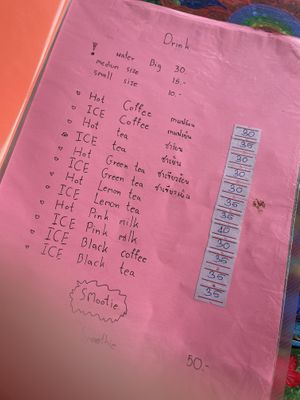 Drink
! water Big 30.
medium size 15.-
small size 10.-
Hot Coffee กาแฟร้อน 30
ICE Coffee กาแฟเย็น 35
Hot tea ชาร้อน 30
ICE tea ชาเย็น 30
Hot Green tea ชาเขียวร้อน 30
Green tea ชาเขียวเย็น 35
Lemon tea 35
ICE Lemon tea 40
Hot Pink milk 30
ICE Pink milk 35
ICE Black coffee 35
ICE Black tea 35
SMootie
Smoothie
50.-